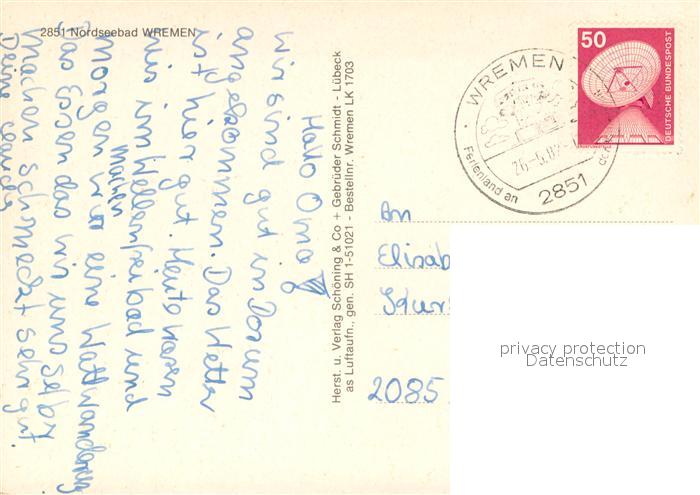 2851 Nordseebad WREMEN
Hallo Oma
wir sind gut in Dorum
angekommen. Das Wetter
ist hier gut. Heute waren
wir im Wellenfreibad und
morgen machen wir eine Wattwanderung
Das Essen das wir uns selbst
machen schmeckt sehr gut.
Deine
Herst. u. Verlag Schöning & Co + Gebrüder Schmidt - Lübeck
as Luftaufn., gen. SH 1-51021 - Bestellnr. Wremen LK 1703
50
DEUTSCHE BUNDESPOST
WREMEN
Ferienland an der
2851
An
Elisab
2085
privacy protection
Datenschutz